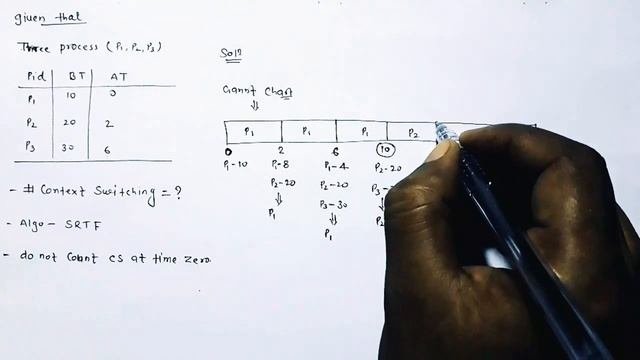 given that
Three process (P1, P2, P3)
Pid BT AT
P1 10 0
P2 20 2
P3 30 6
- # Context Switching = ?
- Algo - SRTF
- do not Count CS at time zero.
Soln
Gannt Chart
⇓
P1 P1 P1 P2
0 2 6 10
P1-10 P1-8 P1-4 P2-20
P2-20 P2-20 P3-
⇓ P3-30 ⇓
P1 ⇓ P2
P1